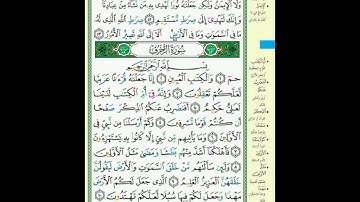 وَلَا ٱلْإِيمَٰنُ وَلَٰكِن جَعَلْنَٰهُ نُورًا نَّهْدِى بِهِۦ مَن نَّشَآءُ مِنْ عِبَادِنَا
وَإِنَّكَ لَتَهْدِىٓ إِلَىٰ صِرَٰطٍ مُّسْتَقِيمٍ ۝ صِرَٰطِ ٱللَّهِ ٱلَّذِى لَهُۥ
مَا فِى ٱلسَّمَٰوَٰتِ وَمَا فِى ٱلْأَرْضِ أَلَآ إِلَى ٱللَّهِ تَصِيرُ ٱلْأُمُورُ ۝
سُورَةُ الزُّخْرُفِ
بِسْمِ ٱللَّهِ ٱلرَّحْمَٰنِ ٱلرَّحِيمِ
حمٓ ۝ وَٱلْكِتَٰبِ ٱلْمُبِينِ ۝ إِنَّا جَعَلْنَٰهُ قُرْءَٰنًا عَرَبِيًّا
لَّعَلَّكُمْ تَعْقِلُونَ ۝ وَإِنَّهُۥ فِىٓ أُمِّ ٱلْكِتَٰبِ لَدَيْنَا
لَعَلِىٌّ حَكِيمٌ ۝ أَفَنَضْرِبُ عَنكُمُ ٱلذِّكْرَ صَفْحًا
أَن كُنتُمْ قَوْمًا مُّسْرِفِينَ ۝ وَكَمْ أَرْسَلْنَا مِن نَّبِىٍّ فِى
ٱلْأَوَّلِينَ ۝ وَمَا يَأْتِيهِم مِّن نَّبِىٍّ إِلَّا كَانُوا۟ بِهِۦ يَسْتَهْزِءُونَ ۝
فَأَهْلَكْنَآ أَشَدَّ مِنْهُم بَطْشًا وَمَضَىٰ مَثَلُ ٱلْأَوَّلِينَ
۝ وَلَئِن سَأَلْتَهُم مَّنْ خَلَقَ ٱلسَّمَٰوَٰتِ وَٱلْأَرْضَ لَيَقُولُنَّ
خَلَقَهُنَّ ٱلْعَزِيزُ ٱلْعَلِيمُ ۝ ٱلَّذِى جَعَلَ لَكُمُ ٱلْأَرْضَ
مَهْدًا وَجَعَلَ لَكُمْ فِيهَا سُبُلًا لَّعَلَّكُمْ تَهْتَدُونَ ۝